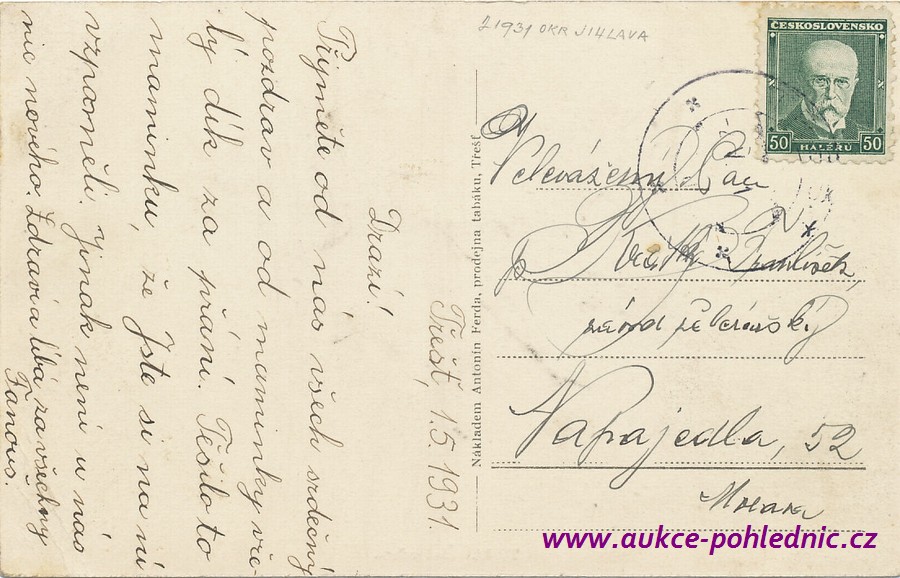 2 1931 OKR JIHLAVA
ČESKOSLOVENSKO
50 HALÉŘŮ 50
Třešť, 1.5 1931.
Drazí!
Přijměte od nás všech srdečný
pozdrav a od maminky vře-
lý dík za přání. Těšilo to
maminku, že Jste si na ni
vzpoměli. Jinak není u nás
nic nového. Zdraví a líbá za všechny
Fanous.
Nákladem Antonín Ferda, prodejna tabáku, Třešť
Velevážený Pan
p. František,
Napajedla, 52
Morava
www.aukce-pohlednic.cz